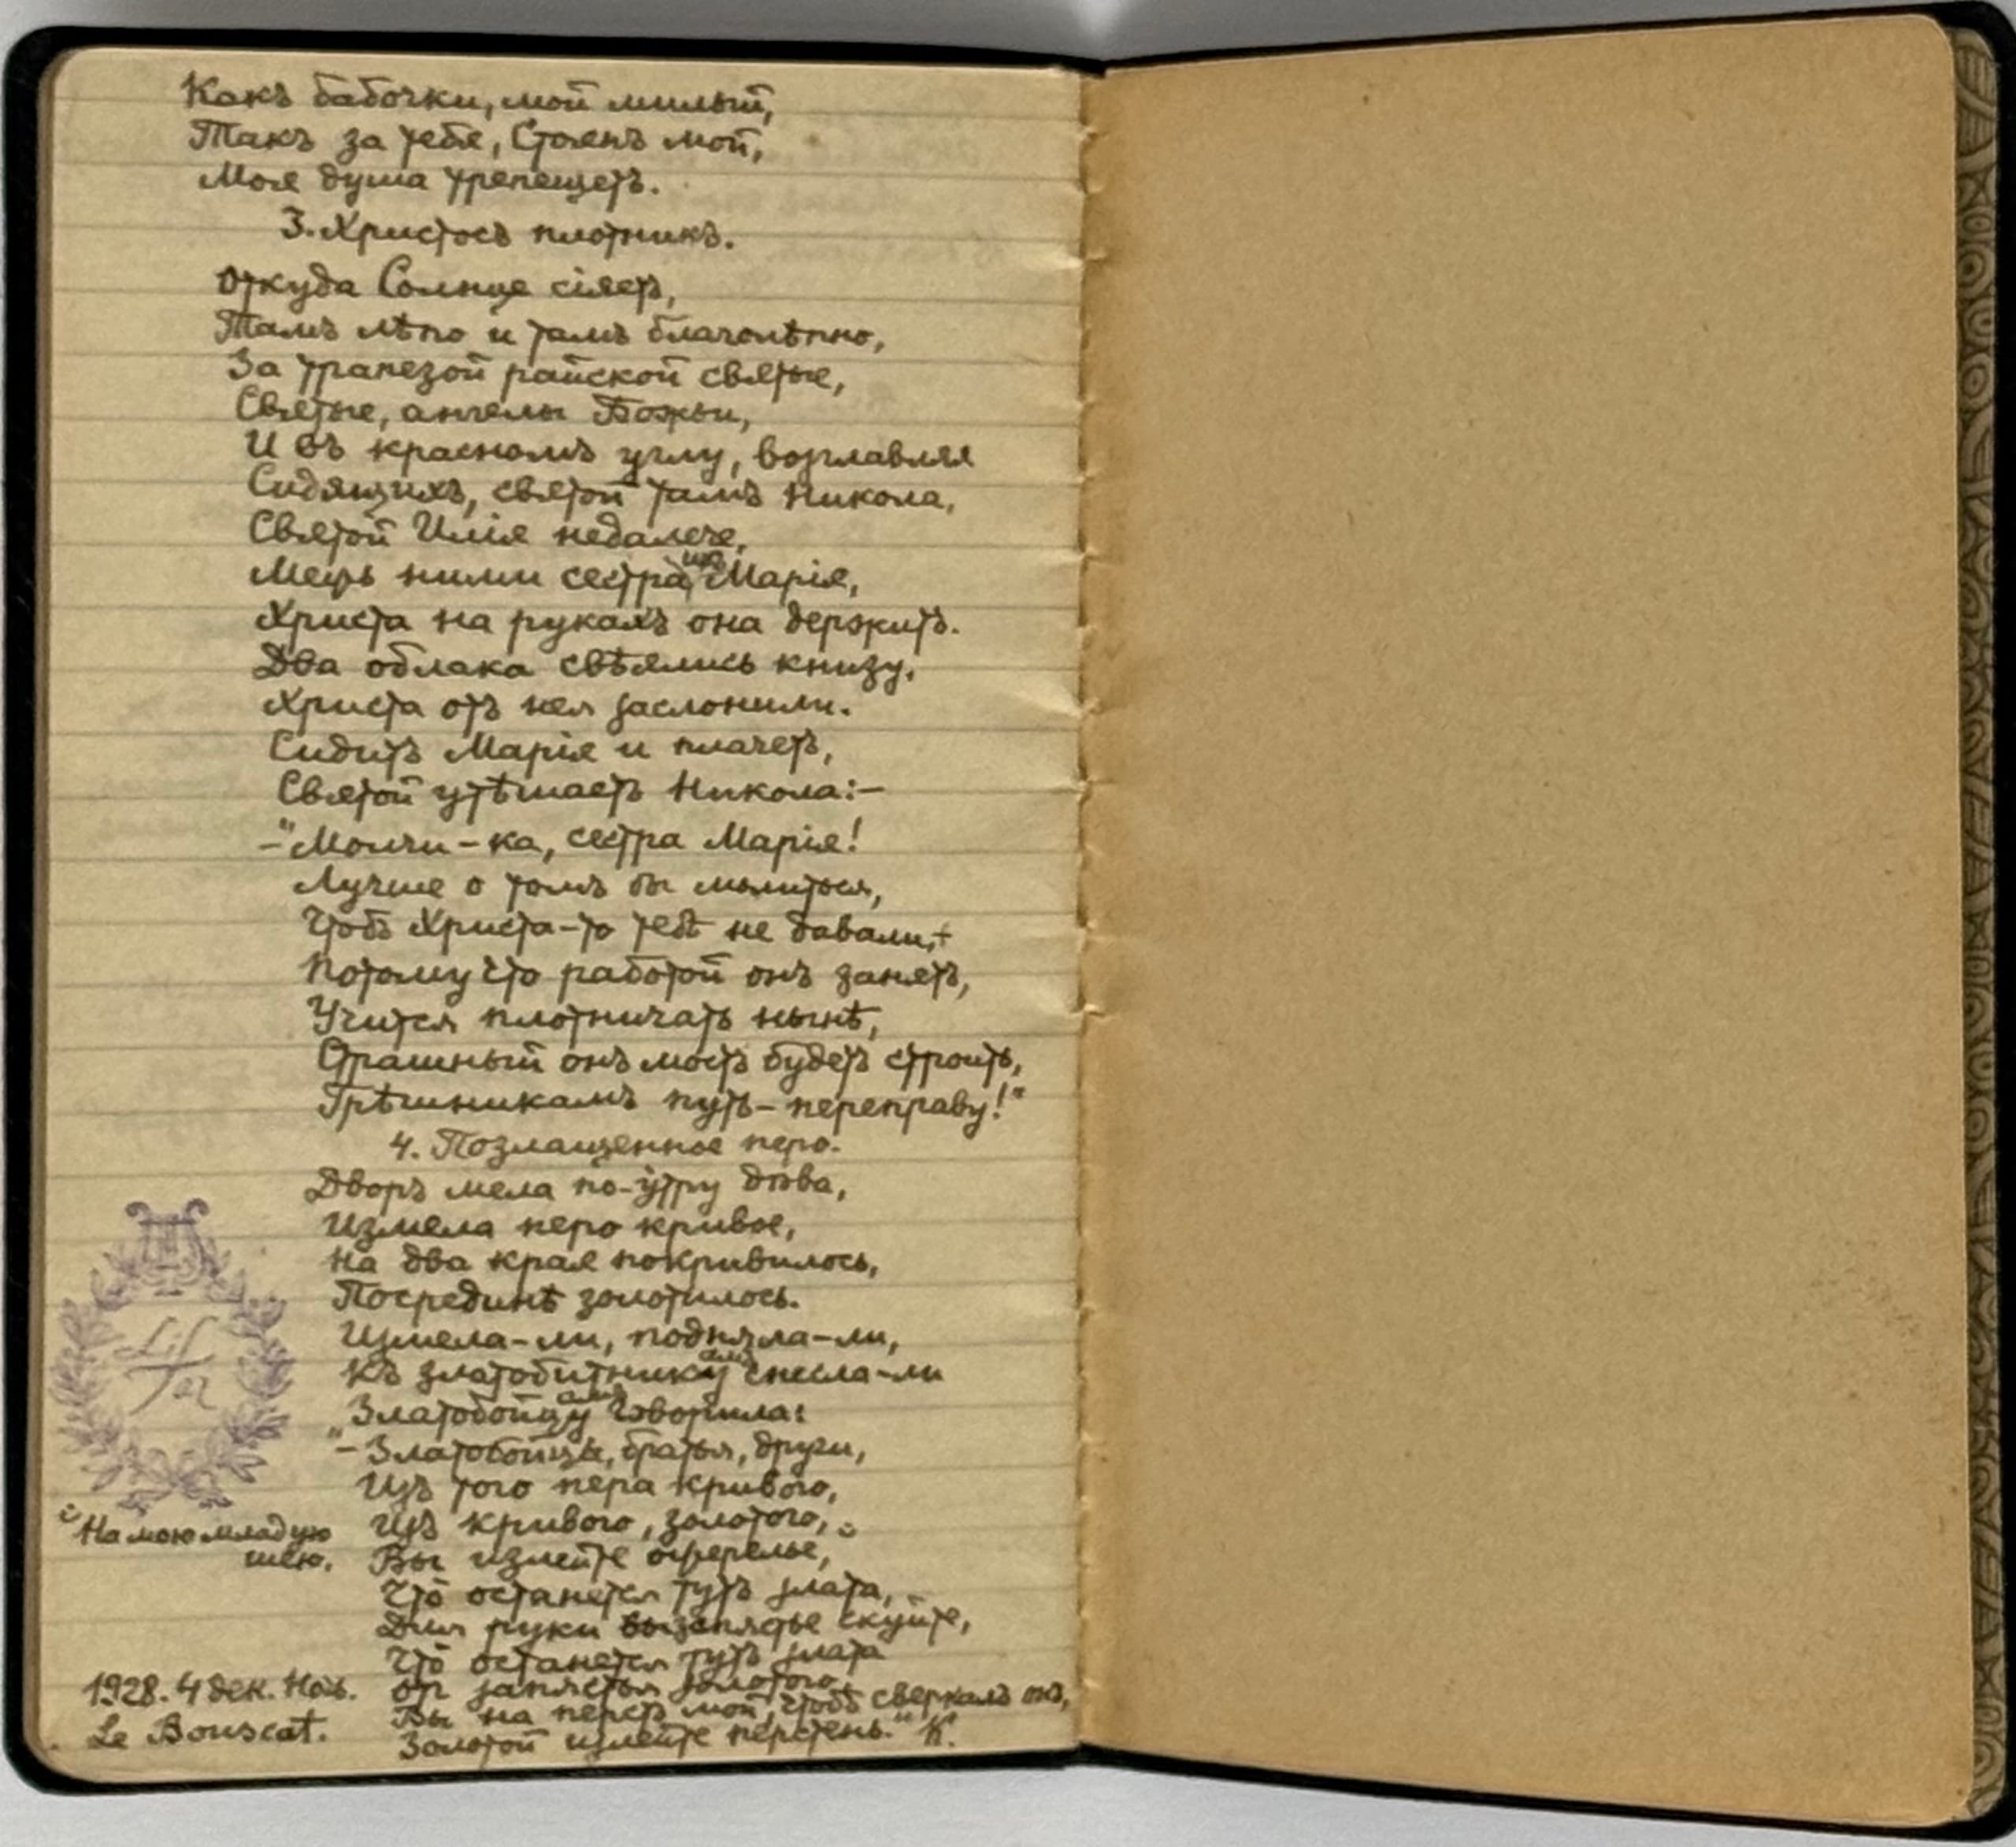 Какъ бабочки, мой милый,
Такъ за тебя, Стоянъ мой,
Моя душа трепещетъ.
3. Христосъ плотникъ.
Откуда Солнце сіяетъ,
Тамъ лѣпо и тамъ благолѣпно,
За трапезой райской святые,
Святые, ангелы Божьи,
И въ красномъ углу, возглавляя
Сидящихъ, святой тамъ Никола,
Святой Илія недалече,
Межь ними сестра Марія,
Христа на рукахъ она держитъ.
Два облака свѣялись книзу,
Христа отъ нея заслонили.
Сидитъ Марія и плачетъ,
Святой утѣшаетъ Никола:–
–"Молчи-ка, сестра Марія!
Лучше о томъ бы молиться,
Чтобъ Христа-то тебѣ не давали,
Потому что работой онъ занятъ,
Учится плотничать нынѣ,
Страшный онъ мостъ будетъ строить,
Грѣшникамъ путь-переправу!"
4. Позлащенное перо.
Дворъ мела по-утру дѣва,
Измела перо кривое,
На два края покривилось,
Посрединѣ золотилось.
Измела-ли, подняла-ли,
Къ златобитнику снесла-ли
Златобойцу говорила:
"–Златобойцы, братья, други,
Изъ того пера кривого,
Изъ кривого, золотого,
На мою младую
шею.
Вы излейте ожерелье,
Что останется тутъ злата,
Для руки вы запястье скуйте,
Что останется тутъ злата
От запястья золотого,
Вы на перстъ мой, чтобъ сверкалъ онъ,
Золотой излейте перстень." К.
Lifar
1928. 4 дек. Ночь.
Le Bouscat.